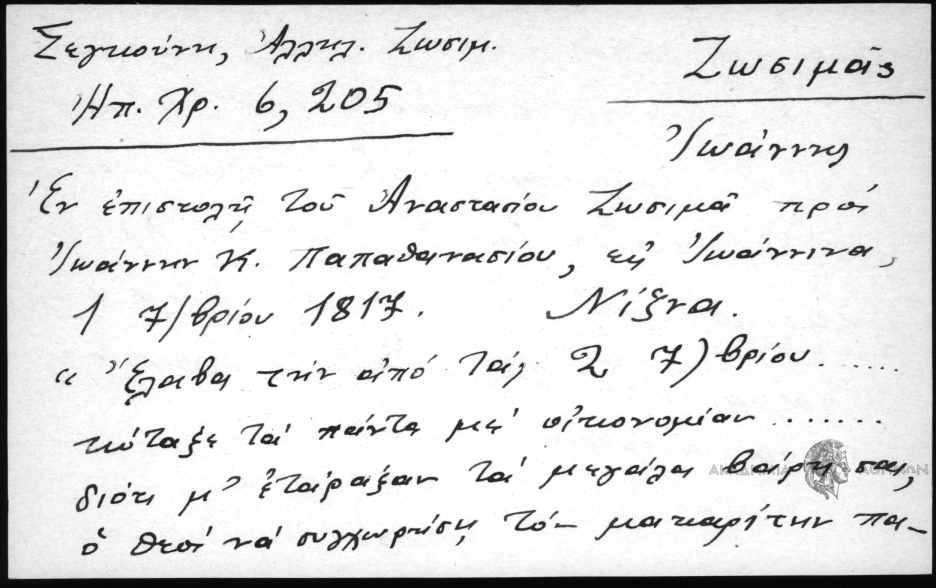 Σεγκούνη, Ἀλληλ. Ζωσιμ.
Ἠπ. Χρ. 6, 205
Ζωσιμᾶς
Ἰωάννης
Ἐν ἐπιστολῇ τοῦ Ἀναστασίου Ζωσιμᾶ πρὸς
Ἰωάννην Κ. Παπαθανασίου, εἰς Ἰωάννινα,
1 7/βρίου 1817. Νίζνα.
« Ἔλαβα τὴν ἀπὸ τὰς 2 7)βρίου......
κύταξε τὰ πάντα μὲ οἰκονομίαν.......
διότι μ' ἐτάραξαν τὰ μεγάλα βάρη σας,
ὁ θεὸς νὰ συγχωρήσῃ τὸν μακαρίτην πα-
ΑΚΑΔΗΜΙΑ ΑΘΗΝΩΝ